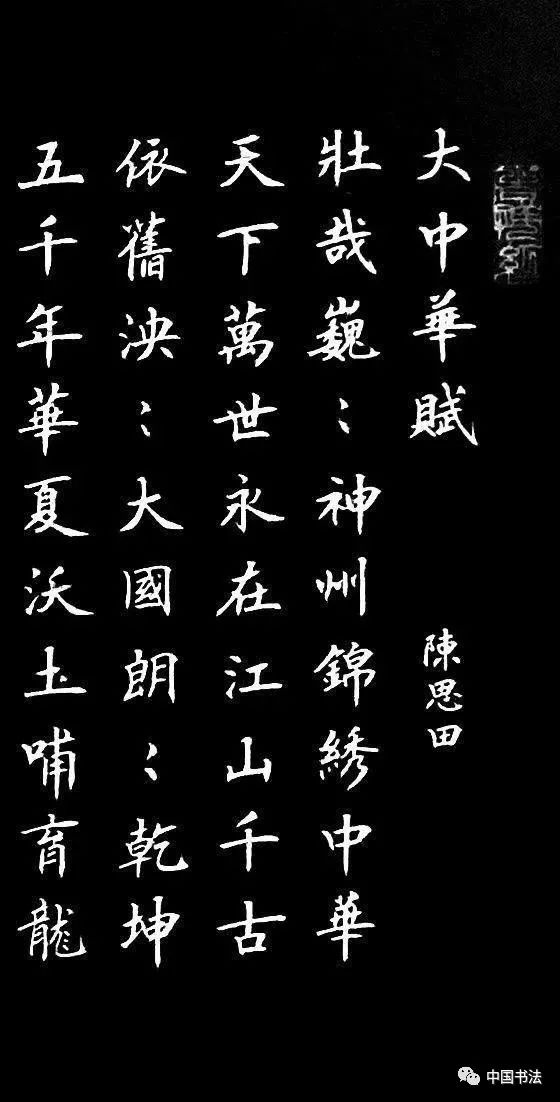 大中華賦
陳思田
壯哉巍〻神州錦綉中華
天下萬世永在江山千古
依舊泱〻大國朗〻乾坤
五千年華夏沃土哺育龍
中国书法